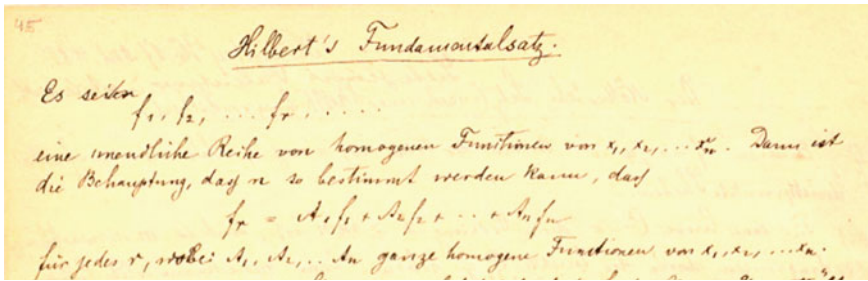 45
Hilbert's Fundamentalsatz.
Es seien
f₁, f₂, ... fᵣ, .....
eine unendliche Reihe von homogenen Functionen von x₁, x₂, ... xₙ. Dann ist
die Behauptung, daß n so bestimmt werden kann, daß
fᵣ = A₁f₁ + A₂f₂ + ... + Aₙfₙ
für jedes r, wobei A₁, A₂, .. Aₙ ganze homogene Functionen von x₁, x₂, ... xₙ.